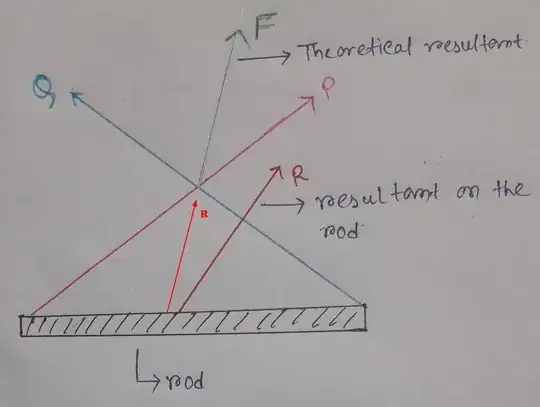 F
Theoretical resultant
Q
P
R
resultant on the
rod
R
rod